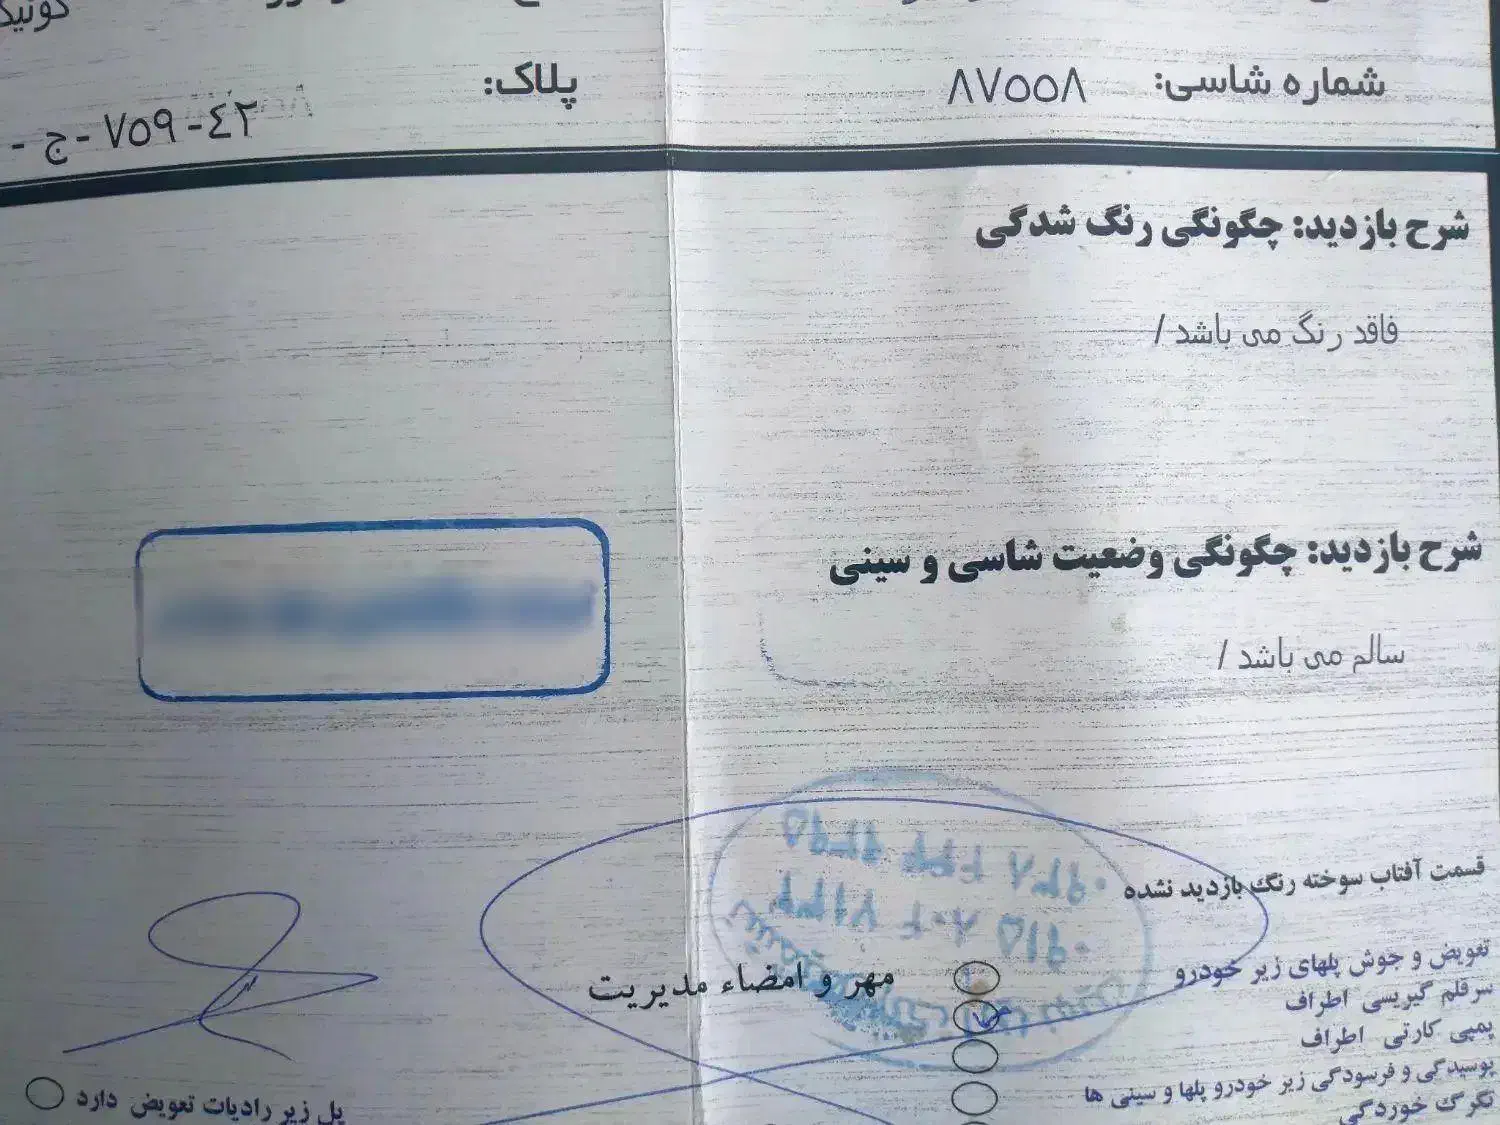 شماره شاسی: ۸۷۵۵۸
پلاک: ۴۲- ۷۵۹ -ج -
شرح بازدید: چگونگی رنگ شدگی
فاقد رنگ می باشد /
شرح بازدید: چگونگی وضعیت شاسی و سینی
سالم می باشد /
قسمت آفتاب سوخته رنگ بازدید نشده
تعویض و جوش پلهای زیر خودرو
مهر و امضاء مدیریت
سرقلم گیریسی اطراف
پمپی کارتی اطراف
پوسیدگی و فرسودگی زیر خودرو پلها و سینی ها
تگرگ خوردگی
پل زیر رادیات تعویض دارد